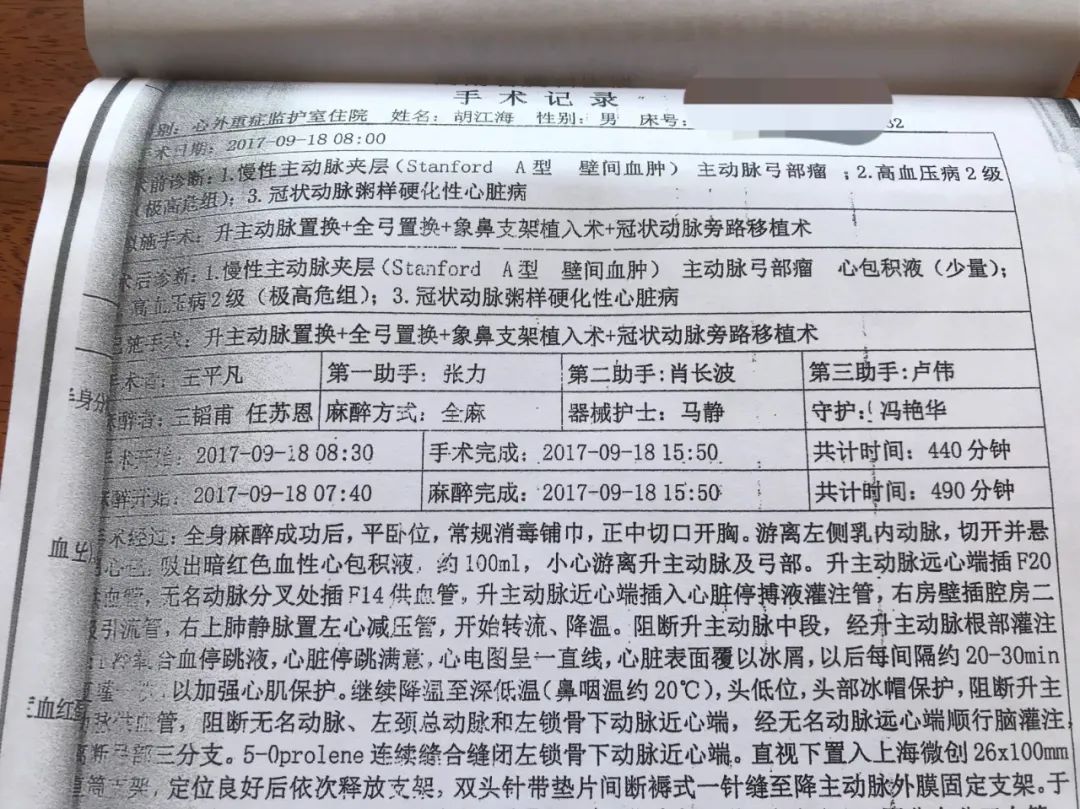 手术记录
别：心外重症监护室住院 姓名：胡江海 性别：男 床号：
术日期：2017-09-18 08:00
术前诊断：1.慢性主动脉夹层（Stanford A型 壁间血肿） 主动脉弓部瘤；2.高血压病2级
（极高危组）；3.冠状动脉粥样硬化性心脏病
施手术：升主动脉置换+全弓置换+象鼻支架植入术+冠状动脉旁路移植术
术后诊断：1.慢性主动脉夹层（Stanford A型 壁间血肿） 主动脉弓部瘤 心包积液（少量）；
高血压病2级（极高危组）；3.冠状动脉粥样硬化性心脏病
施手术：升主动脉置换+全弓置换+象鼻支架植入术+冠状动脉旁路移植术
手术者：王平凡 第一助手：张力 第二助手：肖长波 第三助手：卢伟
麻醉者：王韬甫 任苏恩 麻醉方式：全麻 器械护士：马静 守护：冯艳华
手术开始：2017-09-18 08:30 手术完成：2017-09-18 15:50 共计时间：440分钟
麻醉开始：2017-09-18 07:40 麻醉完成：2017-09-18 15:50 共计时间：490分钟
手术经过：全身麻醉成功后，平卧位，常规消毒铺巾，正中切口开胸。游离左侧乳内动脉，切开并悬
吸出暗红色血性心包积液，约100ml，小心游离升主动脉及弓部。升主动脉远心端插F20
血管，无名动脉分叉处插F14供血管，升主动脉近心端插入心脏停搏液灌注管，右房壁插腔房二
级引流管，右上肺静脉置左心减压管，开始转流、降温。阻断升主动脉中段，经升主动脉根部灌注
合血停跳液，心脏停跳满意，心电图呈一直线，心脏表面覆以冰屑，以后每间隔约20-30min
以加强心肌保护。继续降温至深低温（鼻咽温约20℃），头低位，头部冰帽保护，阻断升主
动脉供血管，阻断无名动脉、左颈总动脉和左锁骨下动脉近心端，经无名动脉远心端顺行脑灌注，
离断弓部三分支。5-0prolene连续缝合缝闭左锁骨下动脉近心端。直视下置入上海微创26x100mm
支架，定位良好后依次释放支架，双头针带垫片间断褥式一针缝至降主动脉外膜固定支架。于